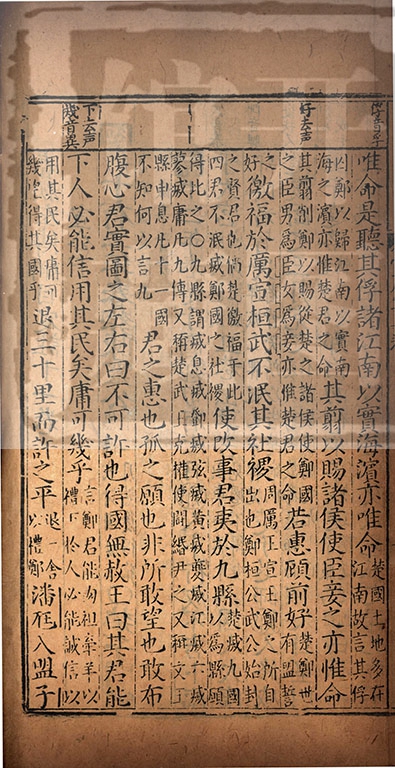 唯命是聽其俘諸江南以實海濱亦唯命
楚國土地多在
江南故言其俘
囚鄭以歸江南以實南
海之濱亦惟楚君之命
其翦以賜諸侯使臣妾之亦惟命
好去声
其翦割鄭以賜從楚之諸侯使鄭國
之臣男爲臣女爲妾亦惟楚君之命
若惠顧前好
楚鄭世
有盟誓
之
好
徼福於厲宣桓武不泯其社稷
周厲王宣王鄭之所自
出也鄭桓公武公始封
之賢君也倘楚徼福于此
四君不泯滅鄭國之社稷
使改事君夷於九縣
楚滅九國
以爲縣願
得比之○九縣謂滅息滅鄧滅弦滅黃滅夔滅江滅六滅
蓼滅庸凡九傳又稱楚武王克權使鬬緡尹之又稱文王
縣申息凡十一國
不知何以言九
君之惠也孤之願也非所敢望也敢布
腹心君實圖之左右曰不可許也得國無赦王曰其君能
下去声
幾音冀
下人必能信用其民矣庸可幾乎
言鄭君能肉袒牽羊以
禮下於人必能誠信以
用其民矣庸可
幾倖得其國乎
退三十里而許之平
退一舍
以禮鄭
潘尫入盟子